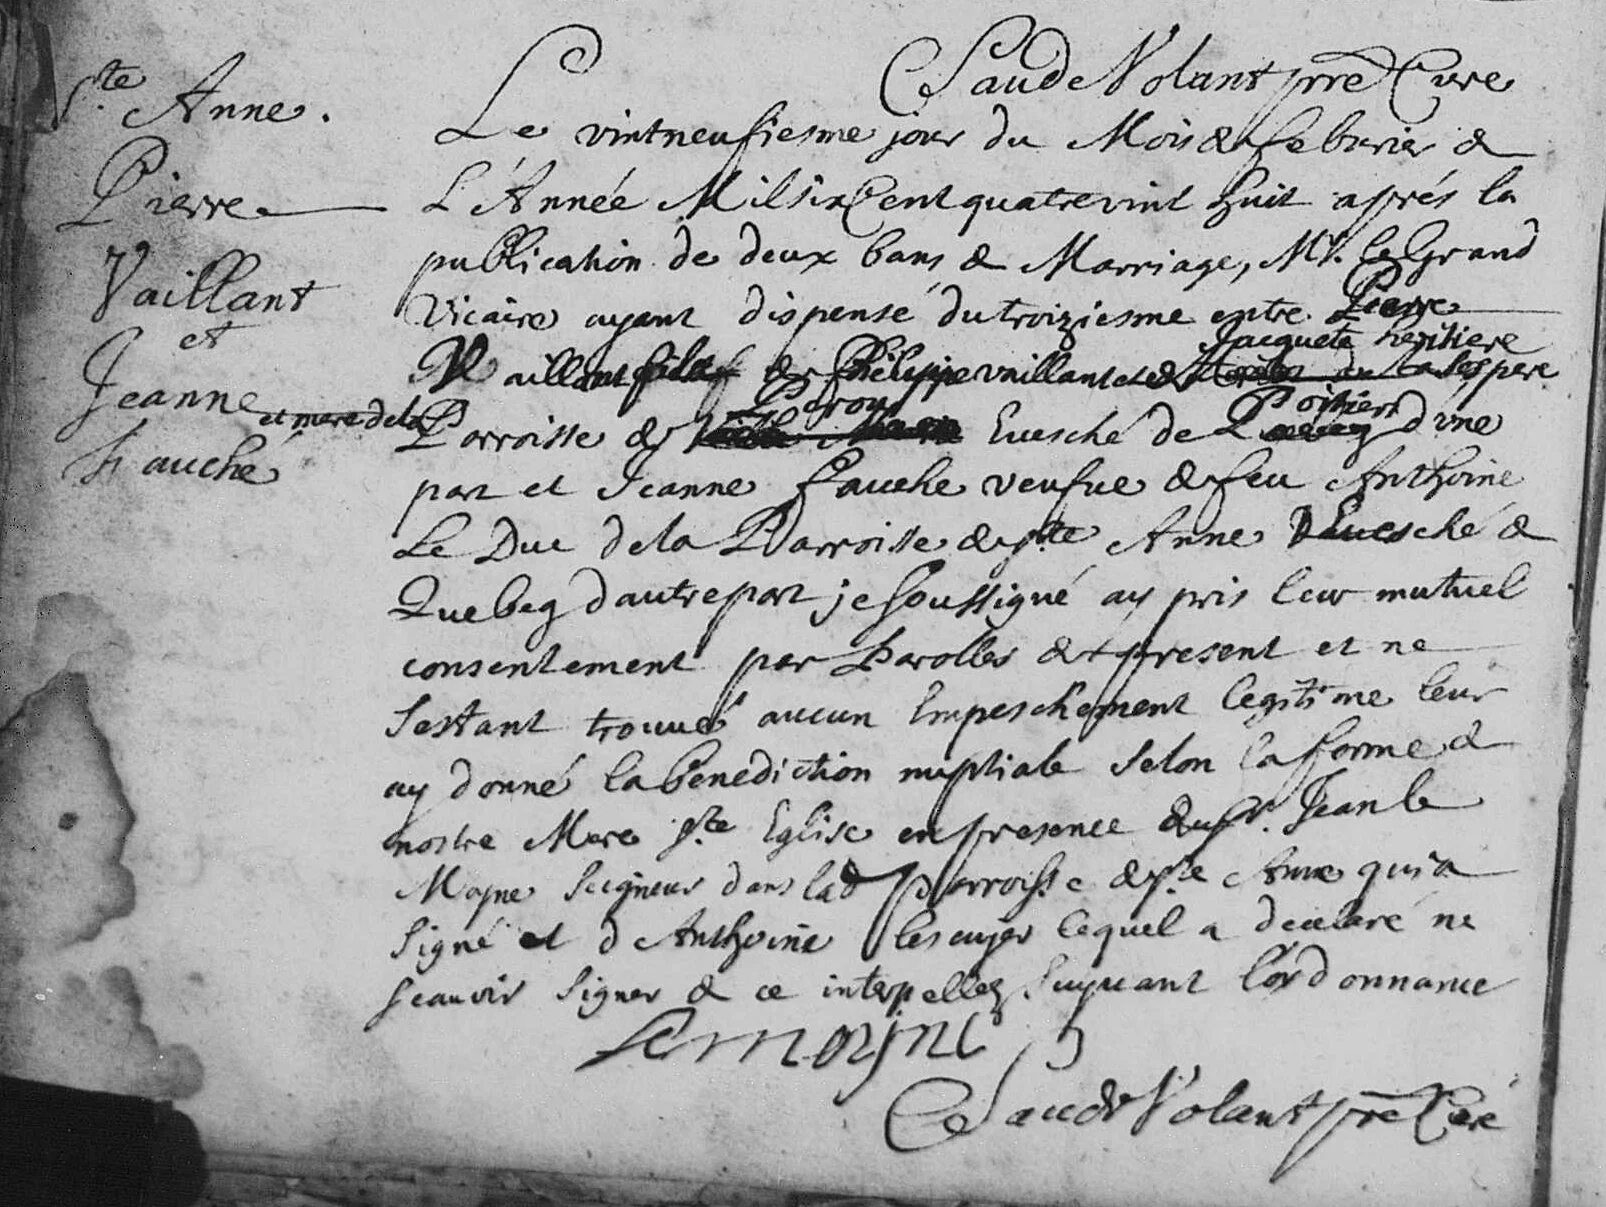 Claude Volant pre Cure
Ste Anne.
Pierre
Vaillant
et
Jeanne
Fauché
Le vintneufiesme jour du Mois de febvrier de
L'Année Mil six Cent quatrevint huit aprés la
publication de deux bans de Marriage, Mr. le Grand
Vicaire ayant dispensé du troiziesme entre Pierre
Jacquete heritiere
Vaillant fils de Philippe vaillant et de ses pere
et mere de la Parroisse de Evesché de Poitiers d'une
part et Jeanne fauche veufue de feu Anthoine
Le Duc de la Parroisse de Ste Anne Evesché de
Quebeq d'autre part je soussigné ay pris leur mutuel
consentement par Parolles de present et ne
sestant trouvé aucun Empeschement legitime leur
ay donné la benediction nuptiale selon la forme de
nostre Mere Ste Eglise en presence du Sr. Jean le
Moyne seigneur dans lad parroisse de Ste Anne qui a
signé et d'Anthoine lescuyer lequel a declaré ne
scavoir signer de ce interpellez suyvant l'ordonnance
Lemoyne
Claude Volant pre Curé